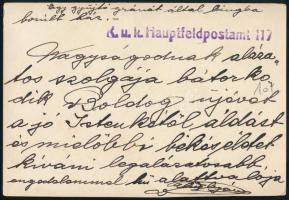 egy gyújtó gránát által lángba
borult ház.-
K. u. k. Hauptfeldpostamt 117
Nagyságodnak aláza-
tos szolgája bátorko-
dik Boldog újévet
a jó Istenkétől, áldást
és mielőbbi békeéldet
kíváni legalázatosabb
engedelemmel hű alattvalója